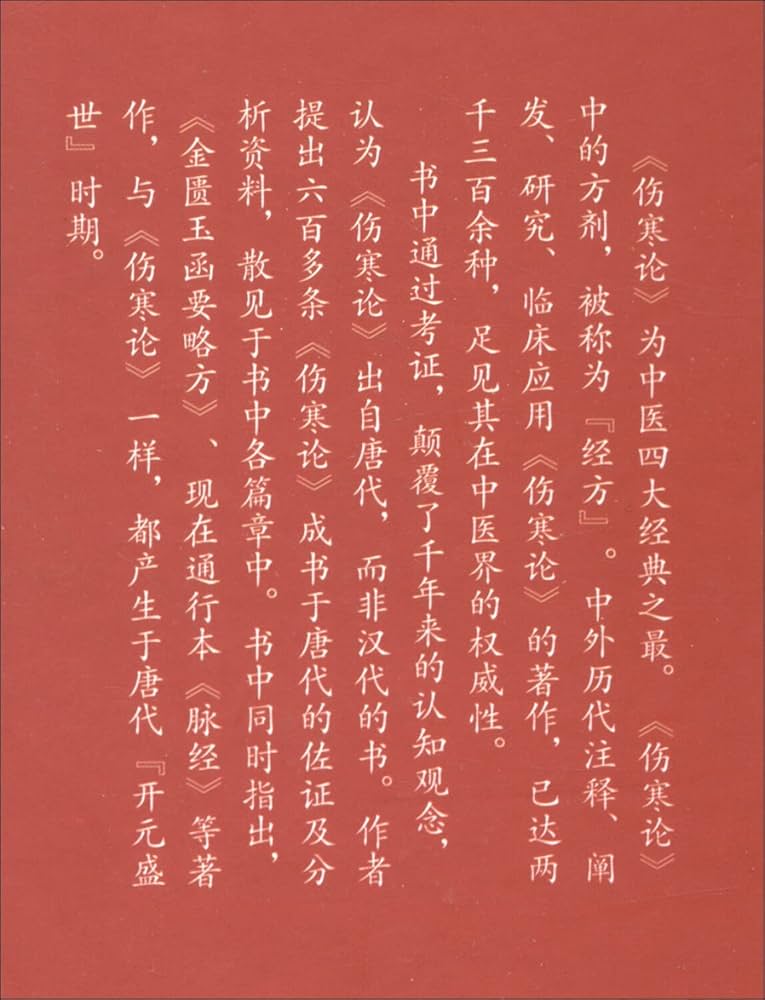 《伤寒论》为中医四大经典之最。《伤寒论》
中的方剂，被称为『经方』。中外历代注释、阐
发、研究、临床应用《伤寒论》的著作，已达两
千三百余种，足见其在中医界的权威性。
书中通过考证，颠覆了千年来的认知观念，
认为《伤寒论》出自唐代，而非汉代的书。作者
提出六百多条《伤寒论》成书于唐代的佐证及分
析资料，散见于书中各篇章中。书中同时指出，
《金匮玉函要略方》、现在通行本《脉经》等著
作，与《伤寒论》一样，都产生于唐代『开元盛
世』时期。